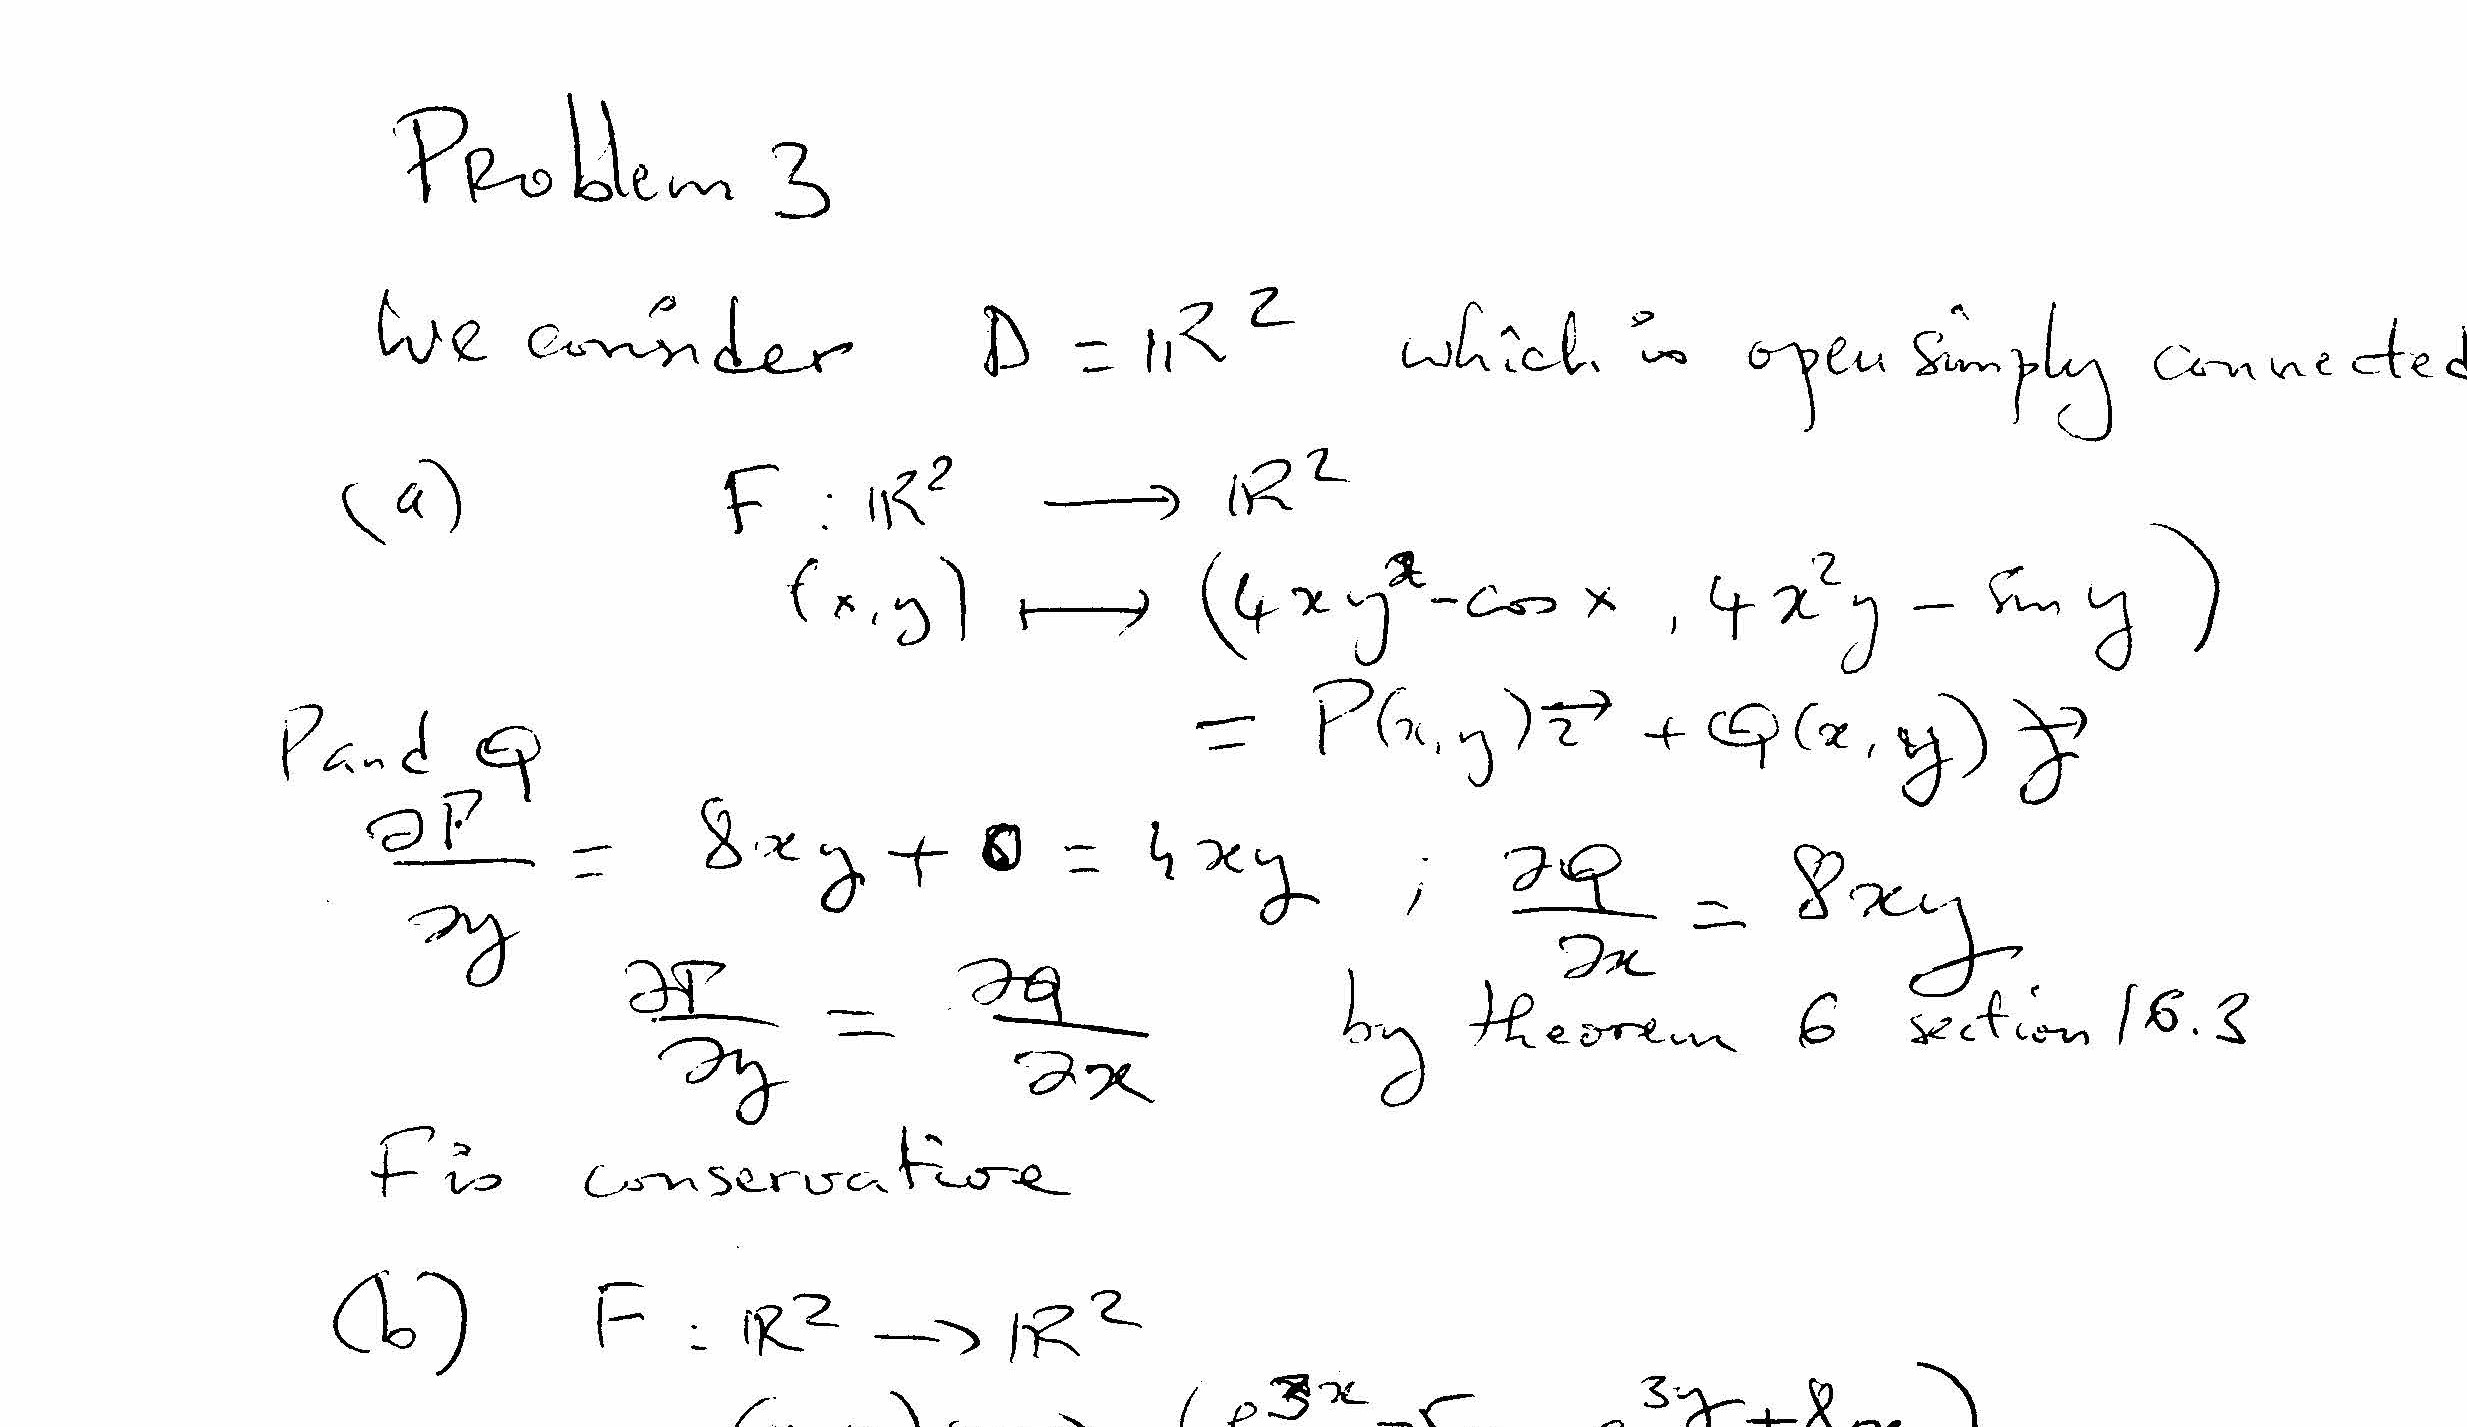 Problem 3
We consider D = ℝ² which is open simply connected
(a) F : ℝ² ⟶ ℝ²
(x,y) ⟼ (4xy²-cos x , 4x²y - sin y)
= P(x,y) i⃗ + Q(x,y) j⃗
P and Q
∂P/∂y = 8xy + 0 = 4xy ; ∂Q/∂x = 8xy
∂P/∂y = ∂Q/∂x by theorem 6 section 16.3
F is conservative
(b) F : ℝ² → ℝ²